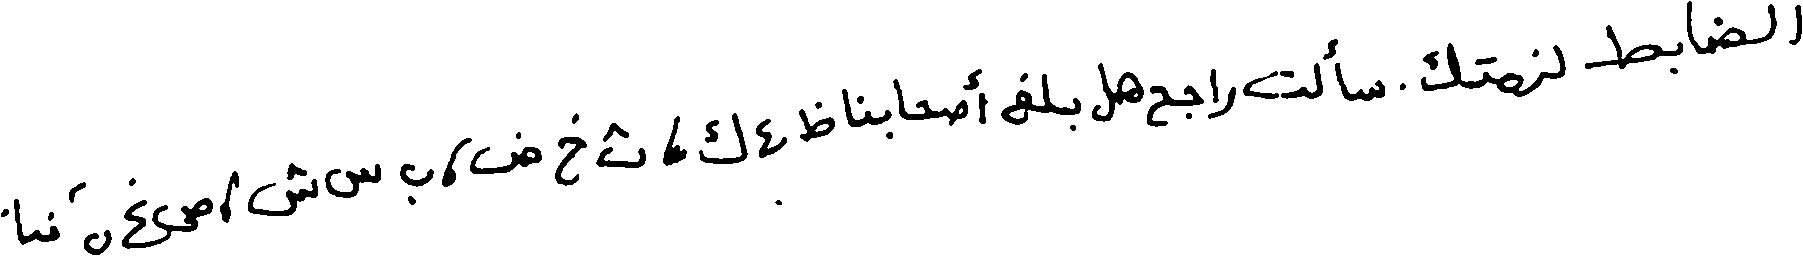 الضابط لنزهتك. سألت راجح هل بلغ أصحابنا ظ ع ك ث خ ض ب س ش ص غ ن